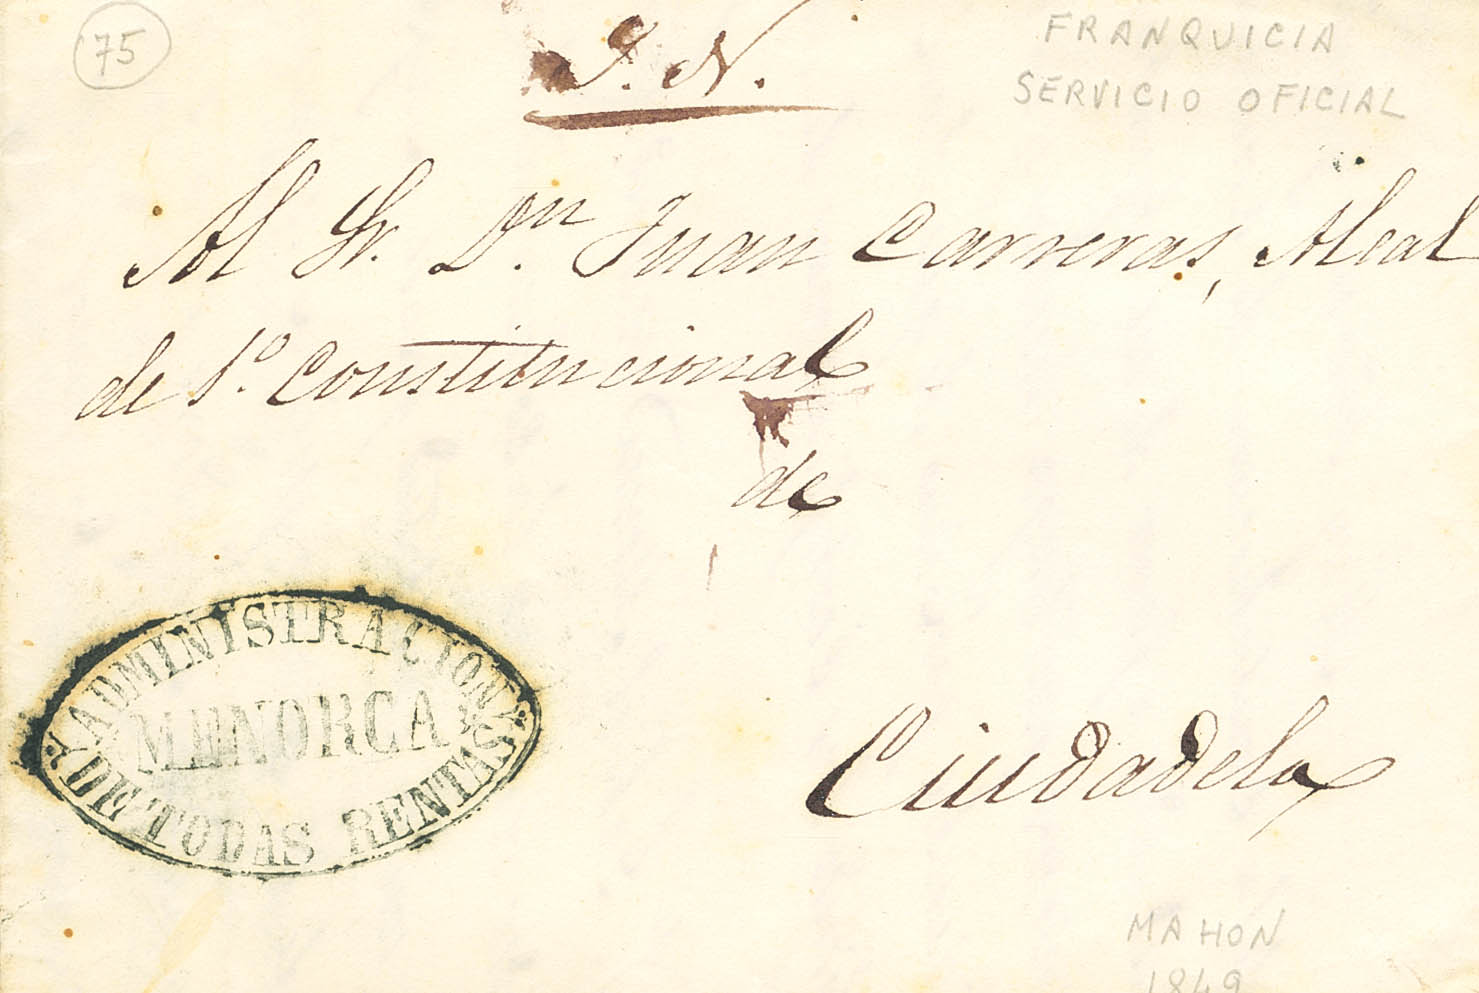 75
S. N.
FRANQUICIA
SERVICIO OFICIAL
Al Sr. Dn. Juan Carreras, Alcal
de 1º Constitucional
de
Ciudadela
ADMINISTRACION
MENORCA
DE TODAS RENTAS
MAHON
1849